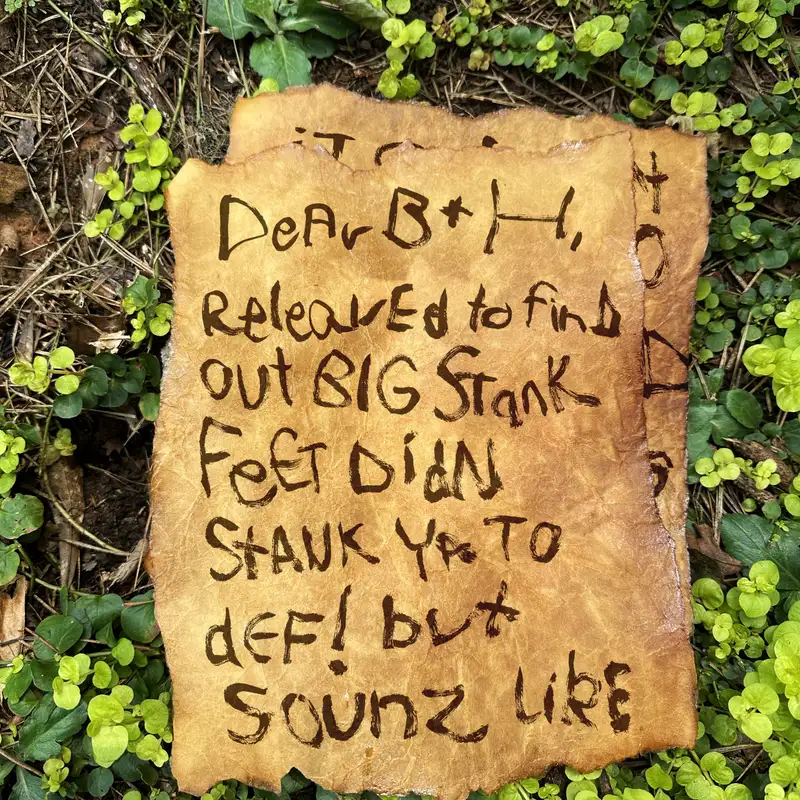 DeAr B + H,
ReleavEd to finD
Out BIG StanK
FeET DidN
StANK YA TO
dEF! but
SOUnZ LiKE